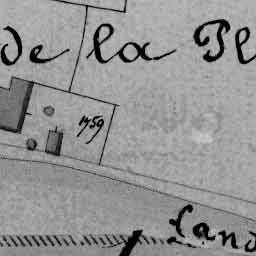 de la Pl
1759
Land